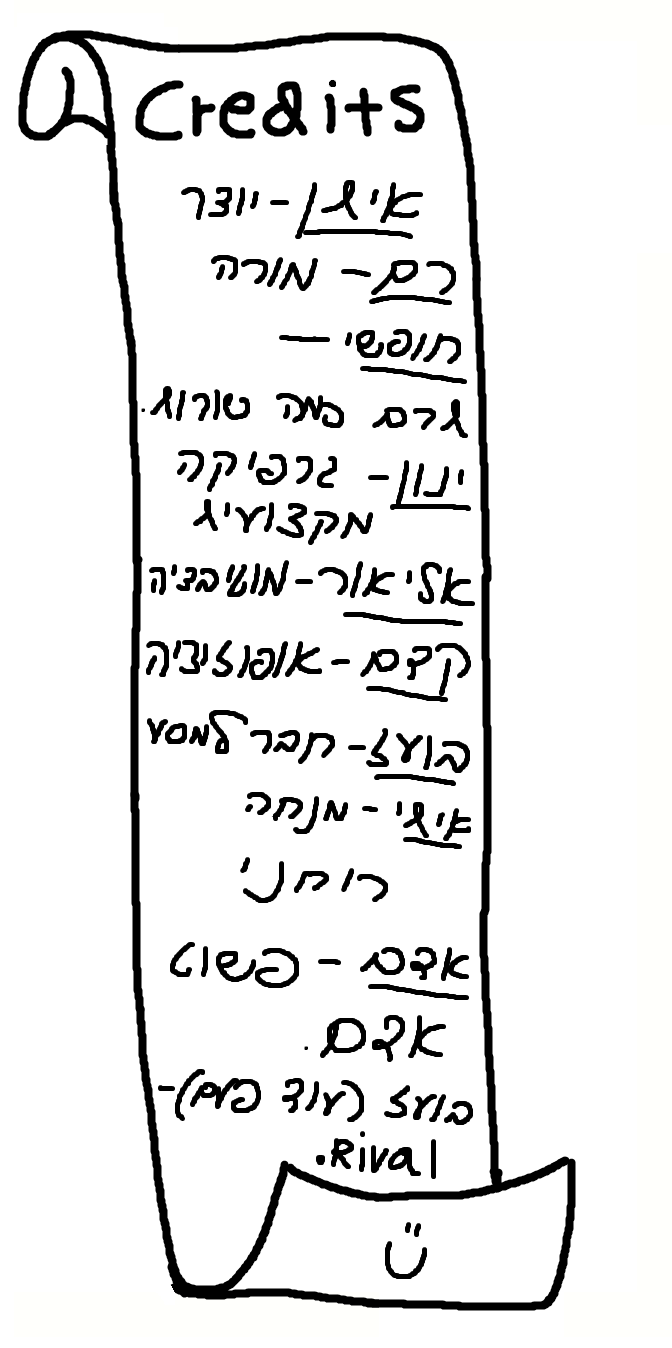 Credits
איתן - יוצר
רם - מורה
חופשי —
תרם כמה שורות.
ינון - גרפיקה
מקצועית
אליאור - מוטיבציה
קדם - אופוזיציה
בועז - חבר למסע
איתי - מנחה
רוחני
אדם - פשוט
אדם.
בועז (עוד פעם) -
Rival.